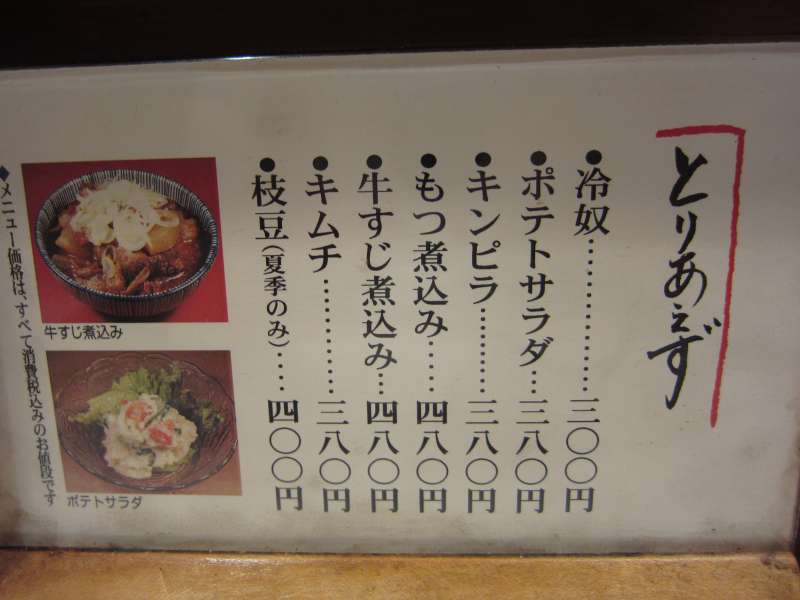 とりあえず
●冷奴……………三〇〇円
●ポテトサラダ…三八〇円
●キンピラ………三八〇円
●もつ煮込み……四八〇円
●牛すじ煮込み…四八〇円
●キムチ…………三八〇円
●枝豆(夏季のみ)……四〇〇円
牛すじ煮込み
ポテトサラダ
◆メニュー価格は、すべて消費税込みのお値段です